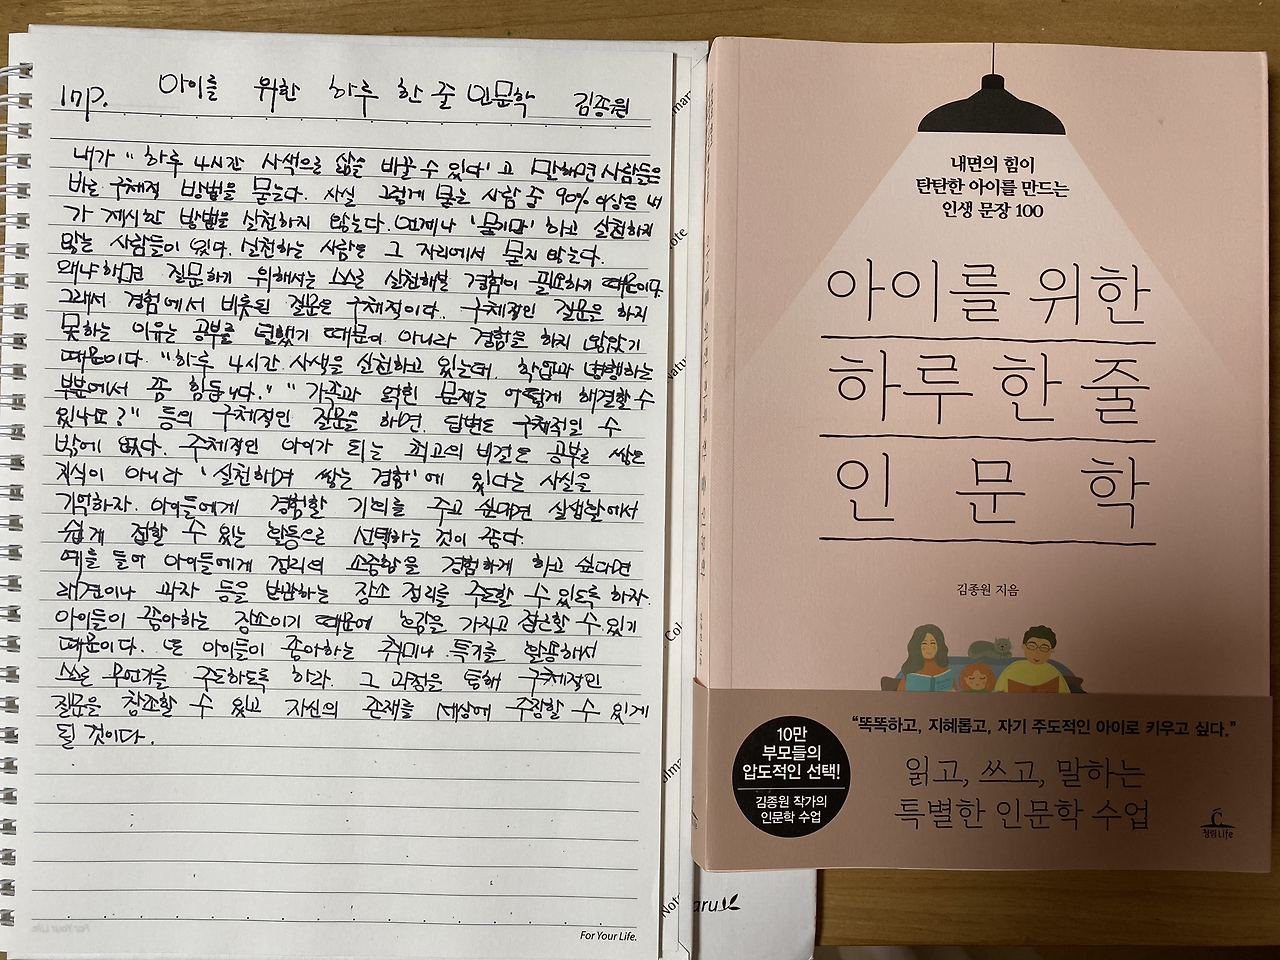 17p. 아이를 위한 하루 한 줄 인문학 김종원
내가 "하루 4시간 사색으로 삶을 바꿀 수 있다'고 말하면 사람들은
바로 구체적 방법을 묻는다. 사실 그렇게 묻는 사람 중 90% 이상은 내
가 제시한 방법을 실천하지 않는다. 언제나 '묻기만' 하고 실천하지
않는 사람들이 있다. 실천하는 사람은 그 자리에서 묻지 않는다.
왜냐하면 질문하기 위해서는 스스로 실천해볼 경험이 필요하기 때문이다.
그래서 경험에서 비롯된 질문은 구체적이다. 구체적인 질문을 하지
못하는 이유는 공부를 덜했기 때문이 아니라 경험을 하지 않았기
때문이다. "하루 4시간 사색을 실천하고 있는데, 학업과 병행하는
부분에서 좀 힘듭니다." "가족과 얽힌 문제는 어떻게 해결할 수
있나요?" 등의 구체적인 질문을 하면, 답변도 구체적일 수
밖에 없다. 주체적인 아이가 되는 최고의 비결은 공부로 쌓은
지식이 아니라 '실천하며 쌓는 경험'에 있다는 사실을
기억하자. 아이들에게 경험할 기회를 주고 싶다면 실생활에서
쉽게 접할 수 있는 활동으로 선택하는 것이 좋다.
예를 들어 아이들에게 정리의 소중함을 경험하게 하고 싶다면
라면이나 과자 등을 보관하는 장소 정리를 주도할 수 있도록 하자.
아이들이 좋아하는 장소이기 때문에 호감을 가지고 접근할 수 있기
때문이다. 또 아이들이 좋아하는 취미나 특기를 활용해서
스스로 무언가를 주도하도록 하라. 그 과정을 통해 구체적인
질문을 창조할 수 있고 자신의 존재를 세상에 주장할 수 있게
될 것이다.
For Your Life.
내면의 힘이
탄탄한 아이를 만드는
인생 문장 100
아이를 위한
하루 한 줄
인문학
김종원 지음
"똑똑하고, 지혜롭고, 자기 주도적인 아이로 키우고 싶다."
10만
부모들의
압도적인 선택!
김종원 작가의
인문학 수업
읽고, 쓰고, 말하는
특별한 인문학 수업
청림Life